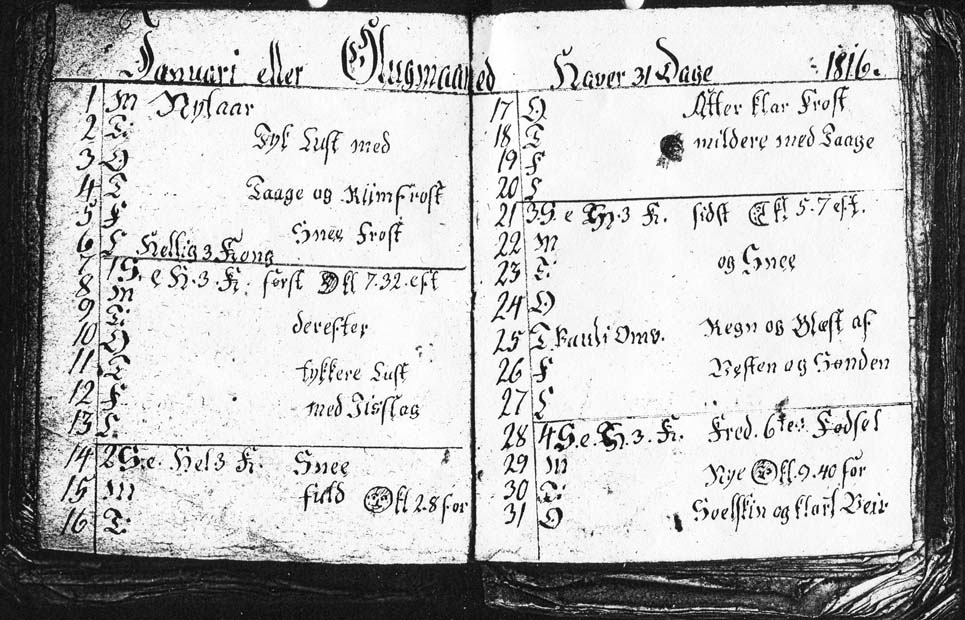 Januari eller Glugmaaned Haver 31 Dage 1816.
1 M Nylaar
2 T. Tyk Luft med
3 O
4 T Taage og Riimfrost
5 F
6 L Hellig 3 Kong Snee Frost
7 1 S. e H. 3. K. først kl 7.32. eft
8 M
9 T. derefter
10 O
11 T tykkere Luft
12 F med Iisslag
13 L
14 2 S. e. Hel 3 K. Snee
15 M fuld kl 2.8 for
16 T.
17 O Atter klar Frost
18 T mildere med Taage
19 F
20 L
21 3 S. e H. 3 K. sidst kl 5.7 eft.
22 M
23 T. og Snee
24 O
25 T Pauli Omv. Regn og Blæst af
26 F Vesten og Sønden
27 L
28 4 S. e. H. 3. K. Fred. 6tes Fødsel
29 M Nye kl. 9.40 for
30 T.
31 O Soelskin og klart Veir